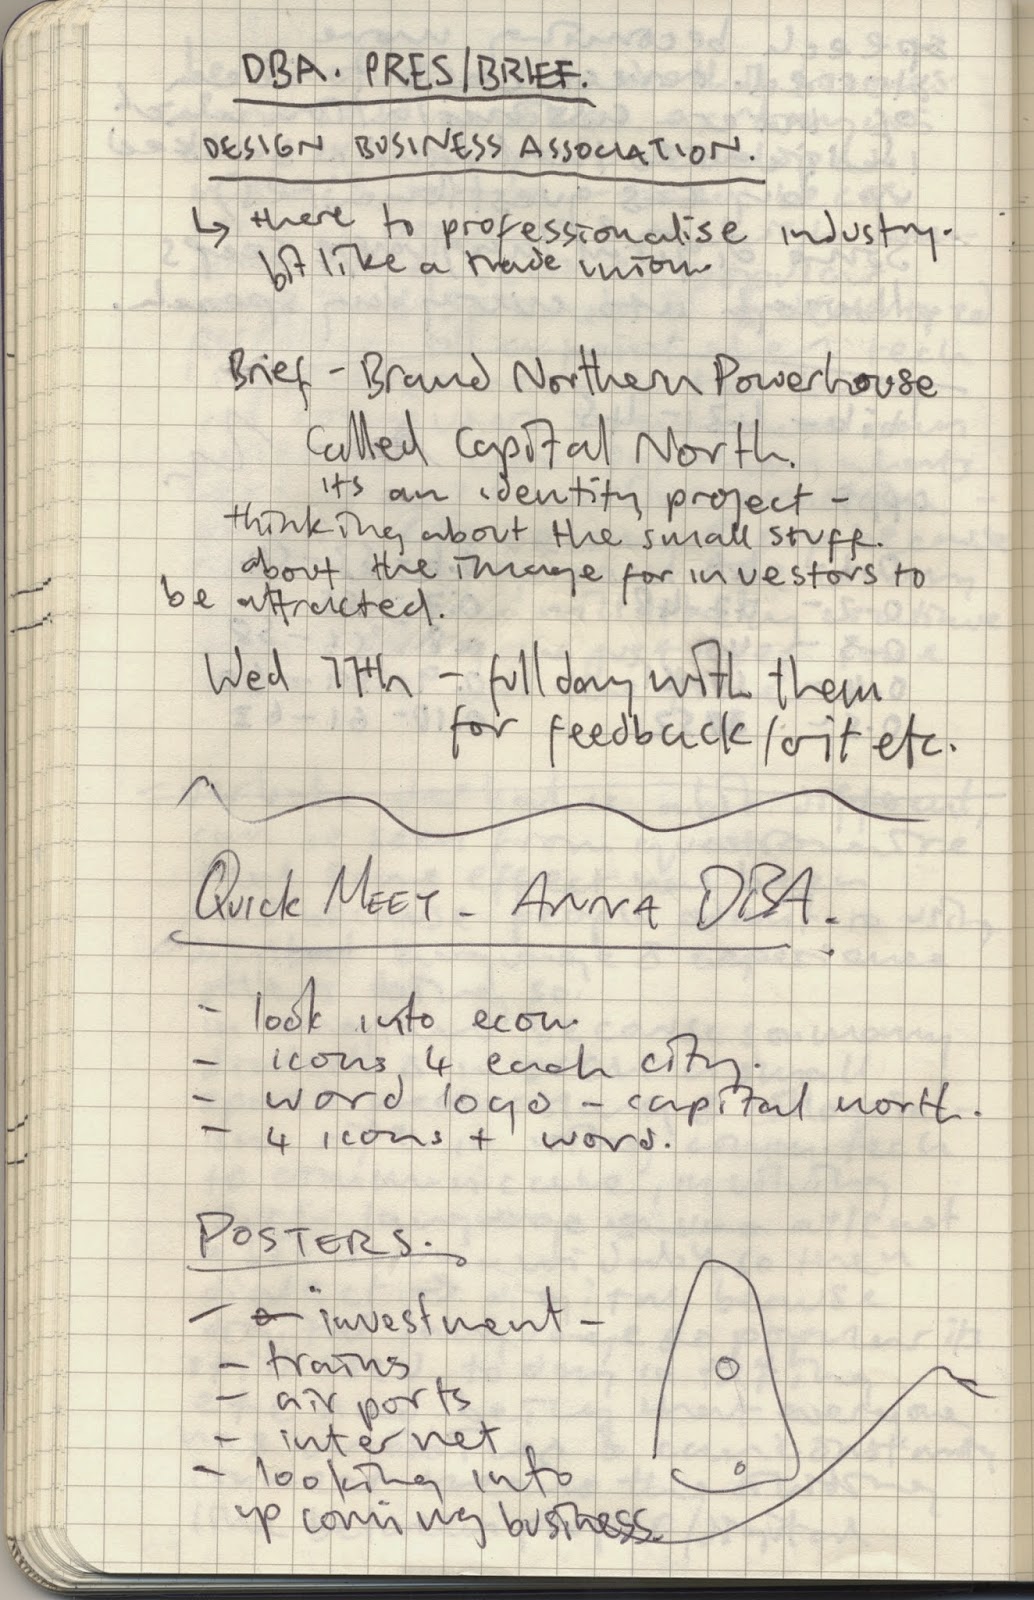 DBA. PRES/BRIEF.
DESIGN BUSINESS ASSOCIATION.
↳ there to professionalise industry.
bit like a trade union.
Brief - Brand Northern Powerhouse
called Capital North.
its an identity project -
thinking about the small stuff.
about the image for investors to
be attracted.
Wed 17th - full day with them
for feedback/crit etc.
QUICK MEET - ANNA DBA.
- look into econ.
- icons 4 each city.
- word logo - capital north.
- 4 icons + word.
POSTERS.
- investment -
- trains
- air ports
- internet
- looking into
up coming business.